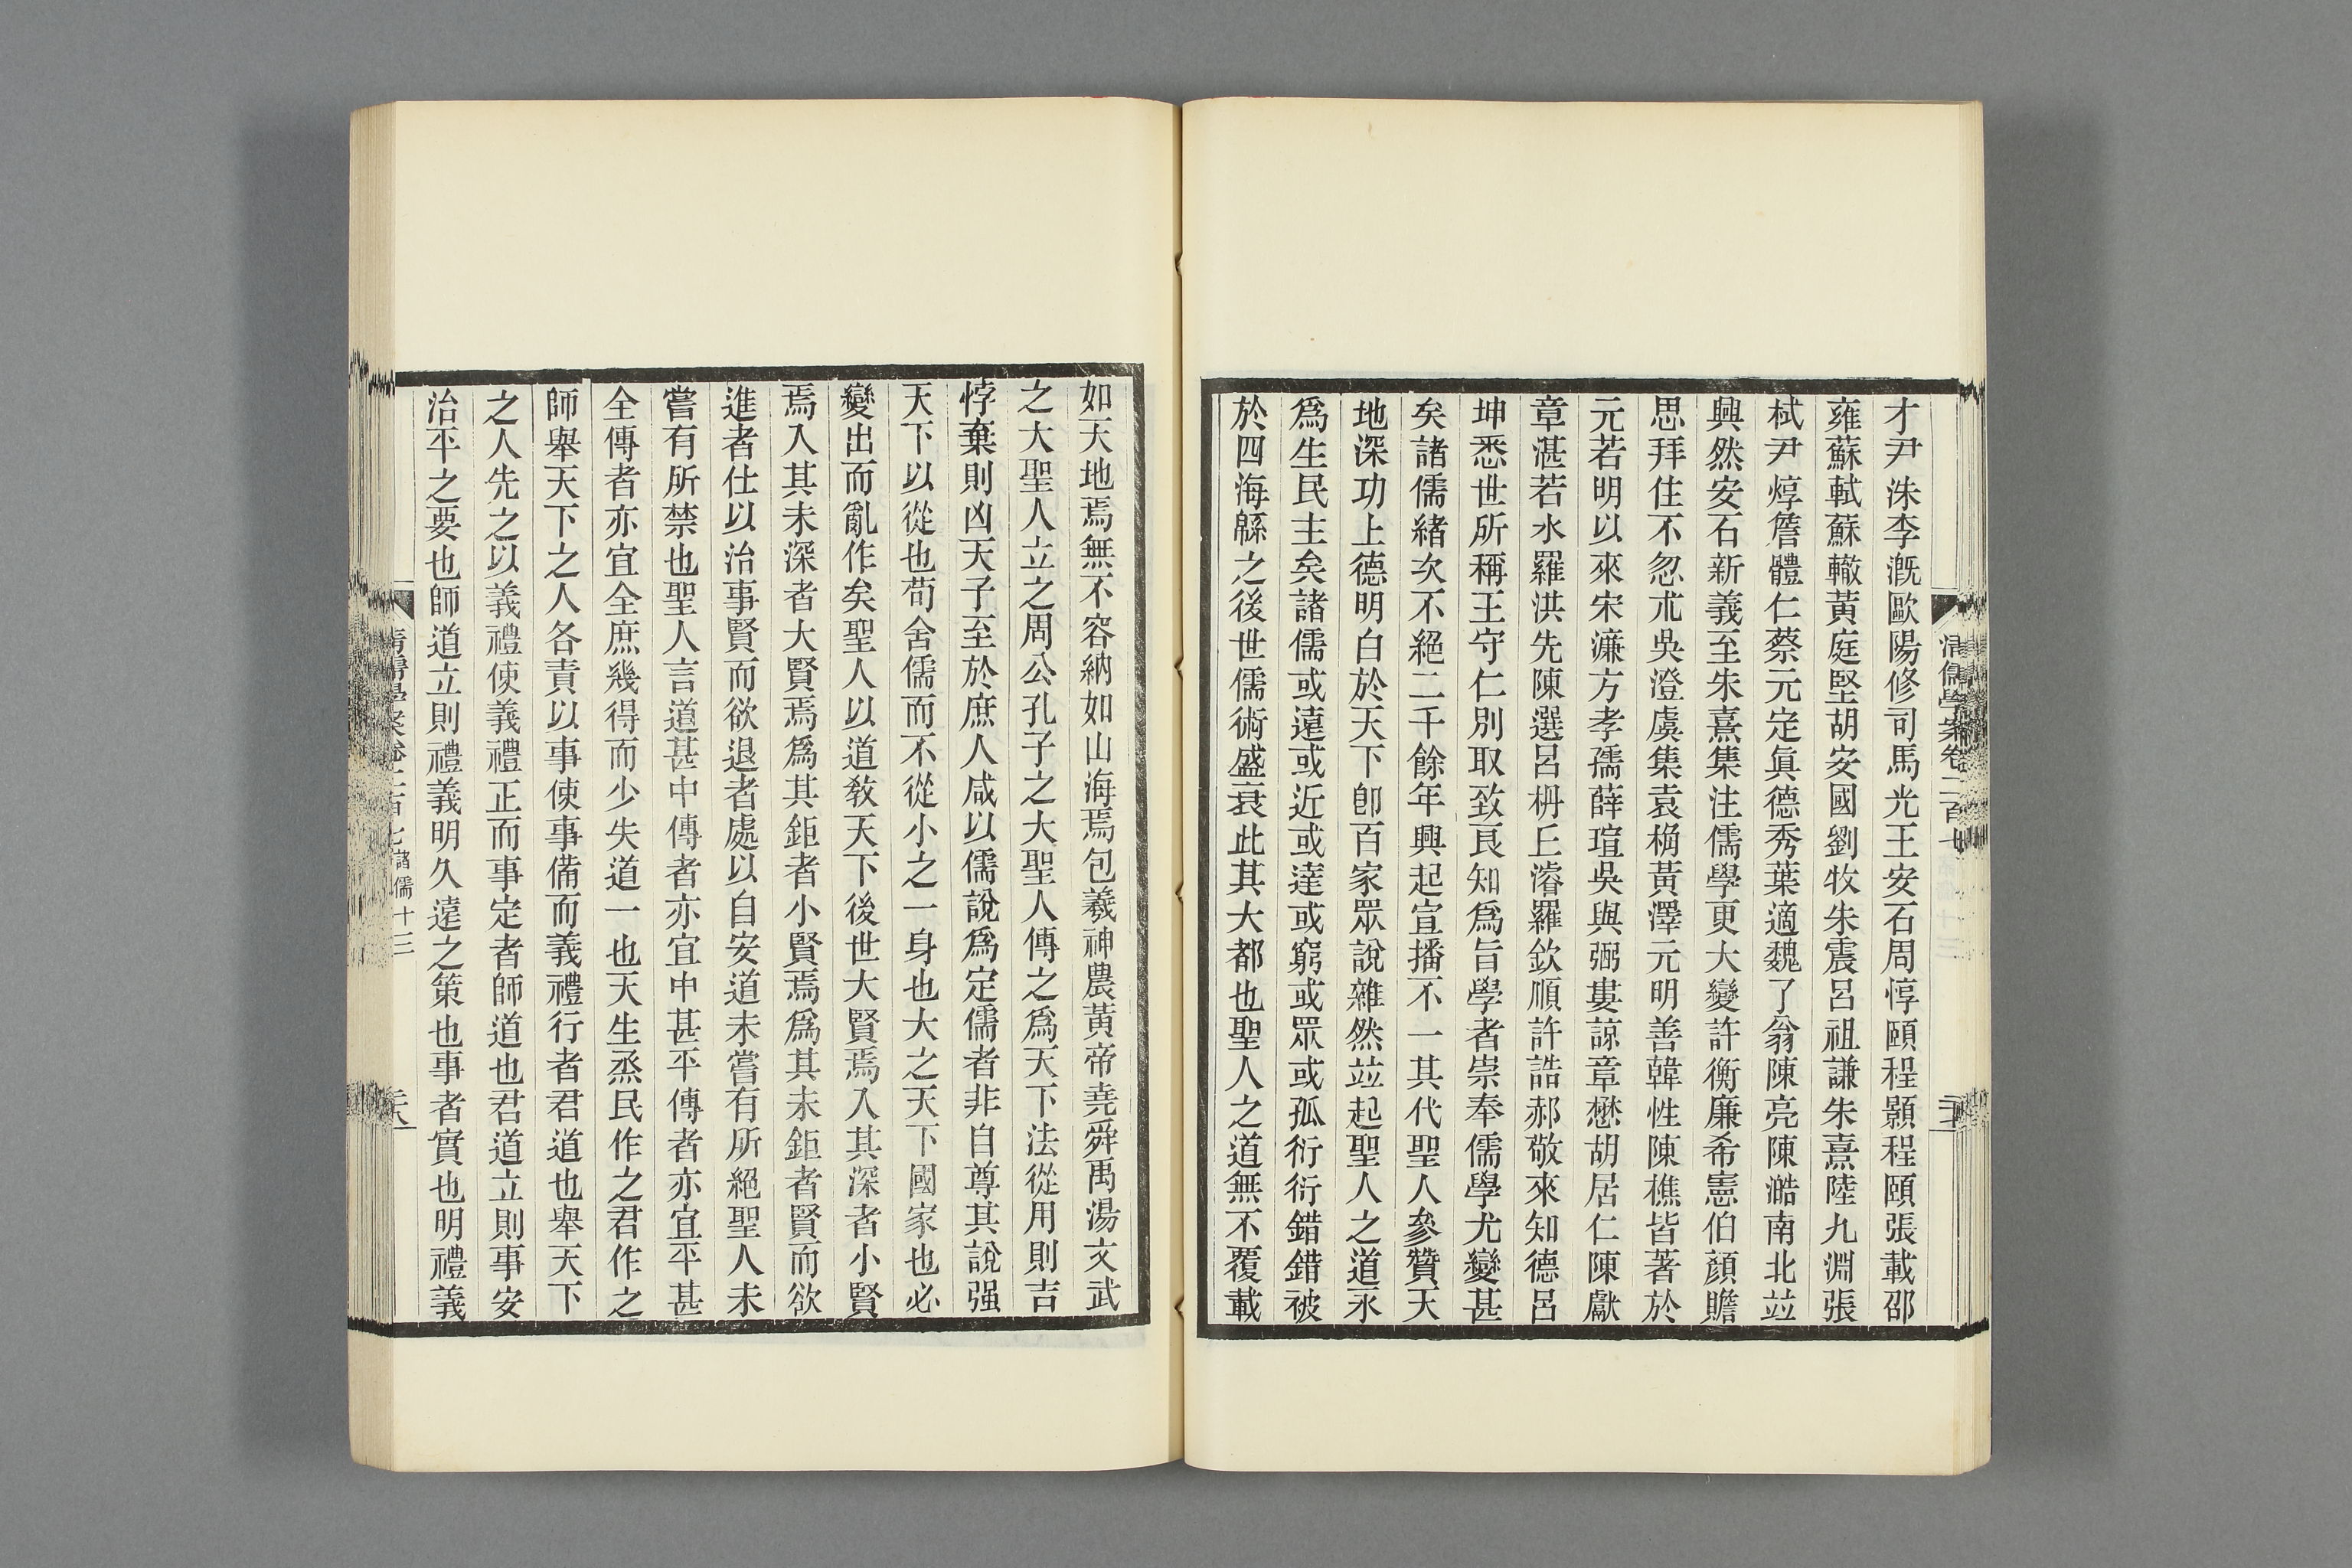 才尹洙李漑歐陽修司馬光王安石周惇頤程顥程頤張載邵
雍蘇軾蘇轍黃庭堅胡安國劉牧朱震呂祖謙朱熹陸九淵張
栻尹焞詹體仁蔡元定眞德秀葉適魏了翁陳亮陳澔南北竝
興然安石新義至朱熹集注儒學更大變許衡廉希憲伯顏贍
思拜住不忽朮吳澄虞集袁桷黃澤元明善韓性陳樵皆著於
元若明以來宋濂方孝孺薛瑄吳與弼婁諒章懋胡居仁陳獻
章湛若水羅洪先陳選呂柟丘濬羅欽順許誥郝敬來知德呂
坤悉世所稱王守仁別取致良知爲旨學者崇奉儒學尤變甚
矣諸儒緒次不絕二千餘年興起宣播不一其代聖人參贊天
地深功上德明白於天下卽百家眾說雜然竝起聖人之道永
爲生民主矣諸儒或遠或近或達或窮或眾或孤衍衍錯錯被
於四海緜之後世儒術盛衰此其大都也聖人之道無不覆載
清儒學案卷二百七
如天地焉無不容納如山海焉包羲神農黃帝堯舜禹湯文武
之大聖人立之周公孔子之大聖人傳之爲天下法從用則吉
悖棄則凶天子至於庶人咸以儒說爲定儒者非自尊其說强
天下以從也苟舍儒而不從小之一身也大之天下國家也必
變出而亂作矣聖人以道敎天下後世大賢焉入其深者小賢
焉入其未深者大賢焉爲其鉅者小賢焉爲其未鉅者賢而欲
進者仕以治事賢而欲退者處以自安道未嘗有所絕聖人未
嘗有所禁也聖人言道甚中傳者亦宜中甚平傳者亦宜平甚
全傳者亦宜全庶幾得而少失道一也天生烝民作之君作之
師舉天下之人各責以事使事備而義禮行者君道也舉天下
之人先之以義禮使義禮正而事定者師道也君道立則事安
治平之要也師道立則禮義明久遠之策也事者實也明禮義
清儒學案卷二百七 諸儒十三